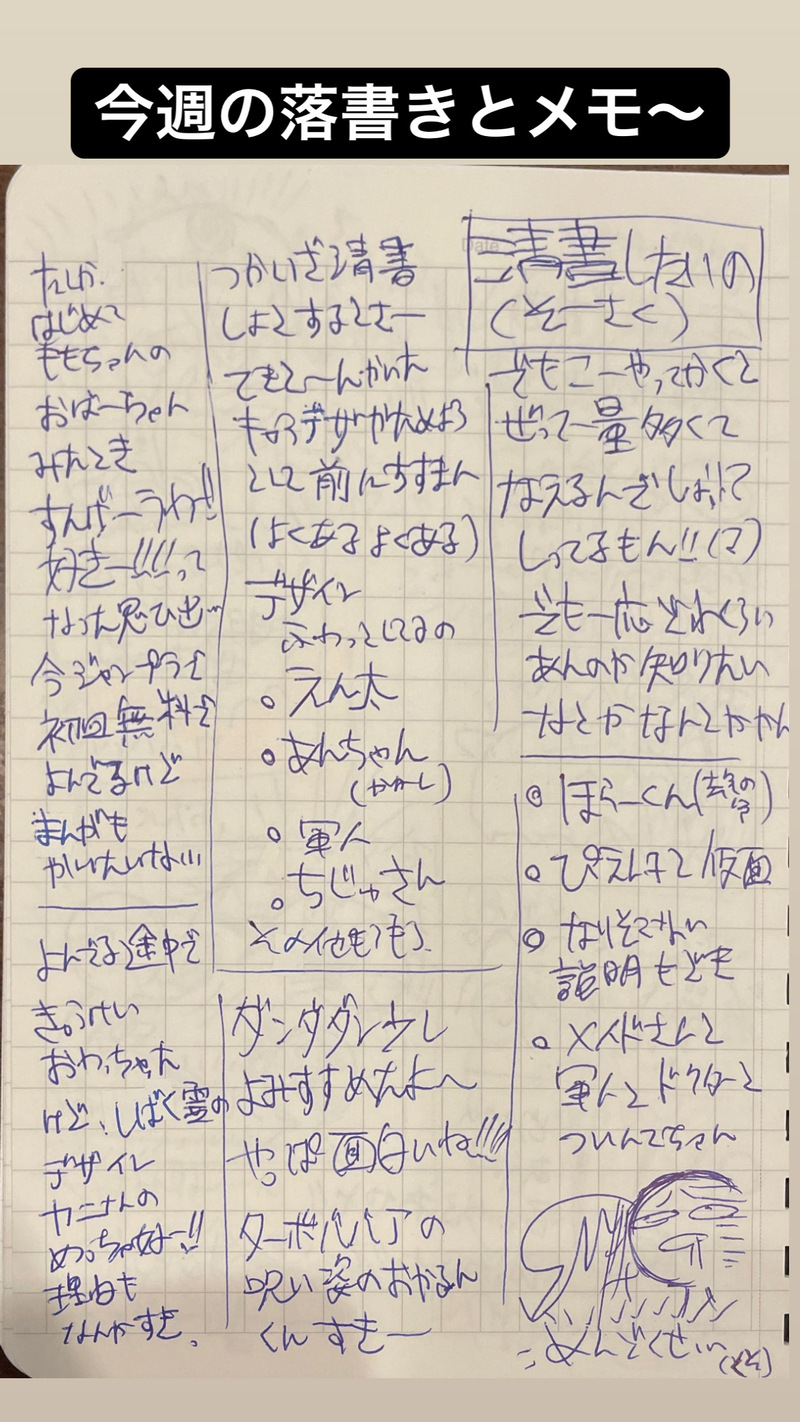 今週の落書きとメモ〜
清書したいの
(そーさく)
でもこーやってかくと
ぜって一量多くて
なえるんでしょって
しってるもん!!(マ)
でも一応どれくらい
あんのか知りたい
なとかなんとかかん
ほらーくん(
ぴえんすと仮面
なりそこない
説明もどき
メイドさんと
軍人とドクターと
ついんてちゃん
めんどくせぃ
つかいざ清書
しよとするとさー
できと〜んかいた
キャラデザがためよう
として前にすすまん
(よくあるよくある)
デザイン
ふわっとしてるの
えん太
あんちゃん
(かかし)
軍人
ちじゅさん
その他もろもろ
ダンダダン少し
よみすすめたよ〜
やっぱ面白いね!!!!
ターボババアの
呪い姿のおかるん
くんすきー
たしか
はじめて
ももちゃんの
おばーちゃん
みたとき
すんげーうわ!!
好きー!!!!って
なった思ひ出…
今ジャンプラで
初回無料で
よんでるけど
まんがも
かいたいな…
よんでる途中で
きゅうけい
おわっちゃった
けど、しばく霊の
デザイン
カニさんの
めっちゃ好ー!!
理由も
なんかすき。